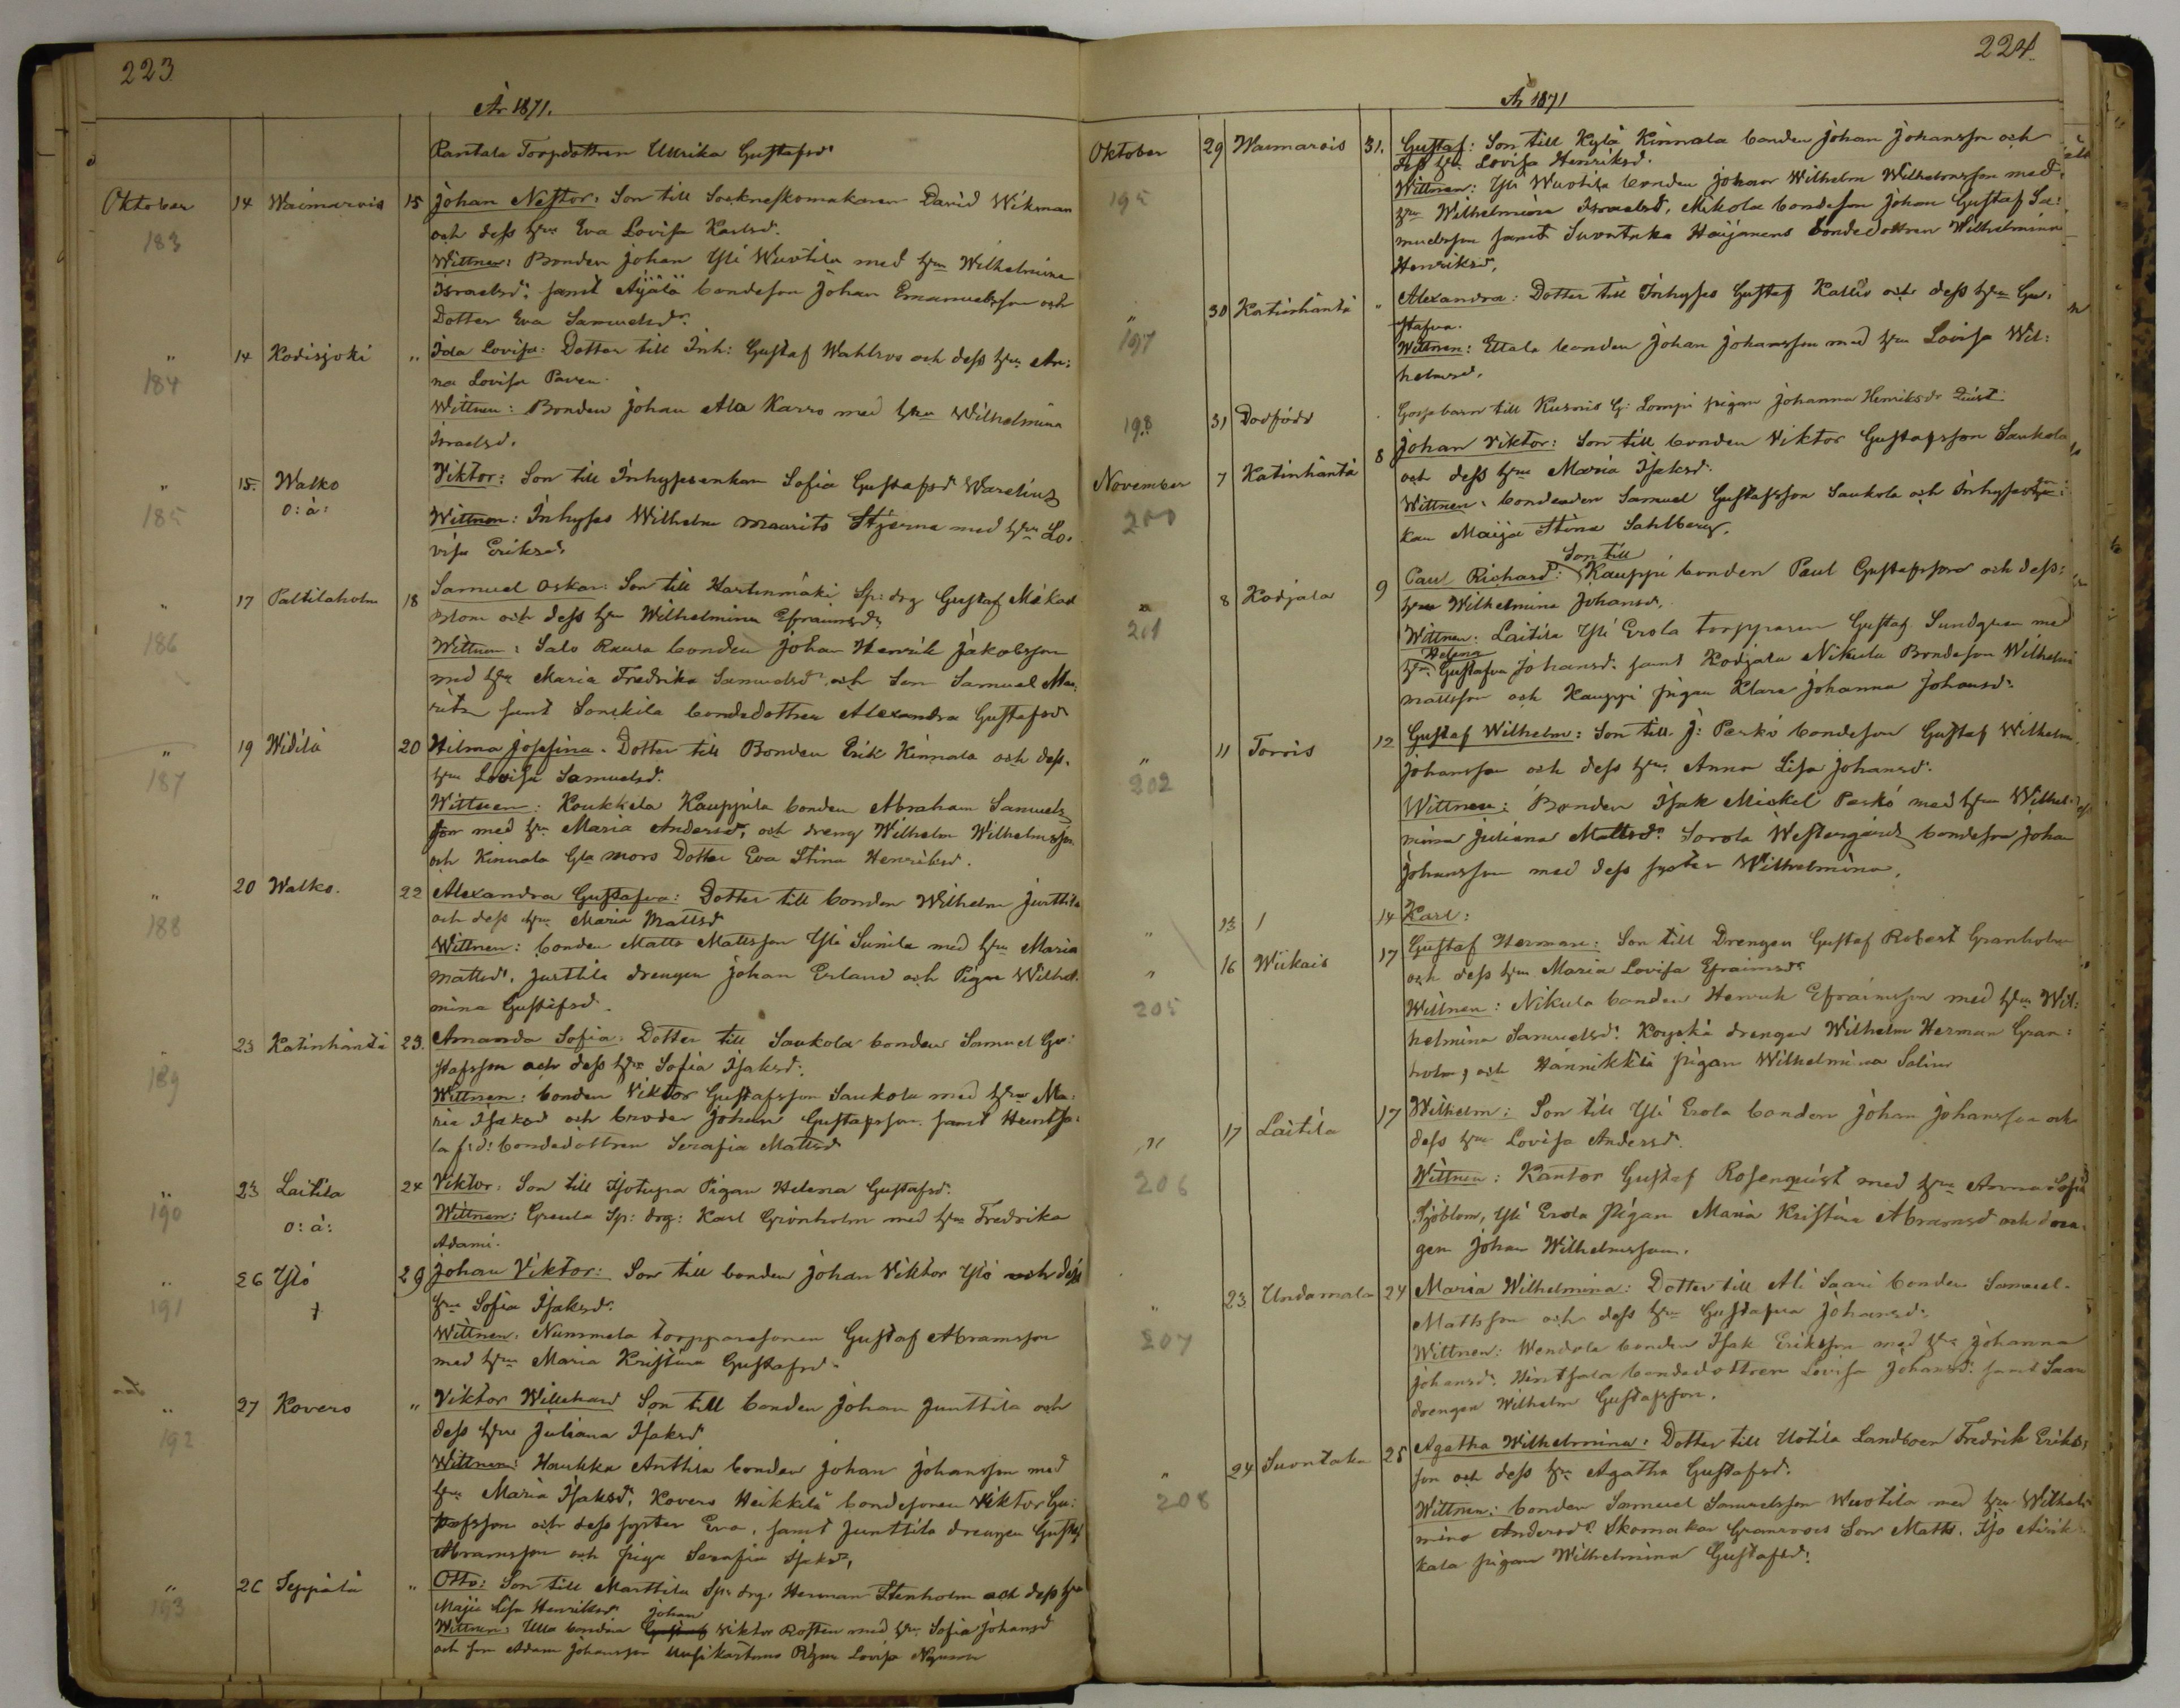 223
År 1871.
Rantala Torpdottren Ullrika Gustafsdr
Oktober 14 Waimarois 15 Johan Nestor: Son till Sockneskomakaren David Wikman
183 och dess hru Eva Lovisa Karlsd.
Wittnen: Bonden Johan Yli Wuotila med hru Wilhelmina
Israelsd. samt Äijälä bondeson Johan Emanuelsson och
Dotter Eva Samuelsdr.
" 14 Kodisjoki " Ida Lovisa: Dotter till Inh: Gustaf Wahlroos och dess hru An:
184 na Lovisa
Wittnen: Bonden Johan Ala Karro med hru Wilhelmina
Israelsd.
" 15. Walko Viktor: Son till Inhysesenkan Sofia Gustafsd Warelius
185 o: ä:
Wittnen: Inhyses Wilhelm Maarits Stjerna med hru Lo:
visa Eriksdr
" 17 Paltilaholm 18 Samuel Oskar: Son till Hartinmäki Sp: drg Gustaf Mikael
Blom och dess hru Wilhelmina Efraimsdr
186 Wittnen: Salo Ruula bonden Johan Henrik Jakobsson
med hru Maria Fredrika Samuelsdr och Son Samuel Mau:
rits samt Sonkila bondedottren Alexandra Gustafsdr
" 19 Widilä 20 Hilma Josefina. Dotter till Bonden Erik Kinnala och dess
187 hru Lovisa Samuelsd.
Wittnen: Koukkela Kauppila bonden Abraham Samuels
son med hru Maria Andersdr, och dreng Wilhelm Wilhelmsson
och Kinnala Gla mors Dotter Eva Stina Henriksd.
" 20 Walko. 22 Alexandra Gustafva: Dotter till bonden Wilhelm Junttila
188 och dess hru Maria Mattsdr
Wittnen: bonden Matts Mattsson Yli Sunila med hru Maria
Mattsd. Junttila drengen Johan Erland och Pigan Wilhel:
mina Gustafsd.
" 23 Katinhäntä 23. Amanda Sofia: Dotter till Saukola bonden Samuel Gu:
189 stafsson och dess hru Sofia Isaksd.
Wittnen: bonden Viktor Gustafsson Saukola med hru Ma:
ria Isaksd och broder Johan Gustafsson samt Huntsa:
la f: d: bondedottren Serafia Mattsd
" 23 Laitila 24 Viktor: Son till Isotupa Pigan Helena Gustafsd.
190 o: ä: Wittnen: Greula Sp: drg: Karl Grönholm med hru Fredrika
Adami.
" 26 Ylö 29 Johan Viktor: Son till bonden Johan Viktor Ylö och dess
191 † hru Sofia Isaksdr.
Wittnen: Nummela torpparesonen Gustaf Abramsson
med hru Maria Kristina Gustafsdr
" 27 Kovero " Viktor Willehard Son till bonden Johan Junttila och
192 dess hru Juliana Isaksdr
Wittnen: Haukka Anthila bonden Johan Johansson med
hru Maria Isaksd. Kovero Heikkilä bondesonen Viktor Gu:
stafsson och dess syster Eva, samt Junttila drengen Gustaf
Abramsson och piga Serafia Isaksd,
" 26 Seppälä " Otto: Son till Marttila Sp: drg: Herman Stenholm och dess hru
193 Maja Lisa Henriksdr Johan
Wittnen: Ulla bonden Gustaf Viktor Rosten med hru Sofia Johansd
och son Adam Johansson Uusikartano Pigan Lovisa Nyman
224
År 1871
Oktober 29 Waimarois 31. Gustaf: Son till Kylä Kinnala bonden Johan Johansson och
dess hru Lovisa Henriksd.
195 Wittnen: Yli Wuotila bonden Johan Wilhelm Wilhelmsson med
hru Wilhelmina Israelsd. Mikola bondeson Johan Gustaf Sa:
muelsson samt Suontaka Haijanens bondedottren Wilhelmina
Henriksd.
" 30 Katinhäntä " Alexandra: Dotter till Inhyses Gustaf Kallio och dess hru Gu:
stafva.
197 Wittnen: Ettala bonden Johan Johansson med hru Lovisa Wil:
helmsd.
198 31 Dödfödd Gossebarn till Kusnis G: Lompi pigan Johanna Henriksdr Quist
November 7 Katinhäntä 8 Johan Viktor: Son till bonden Viktor Gustafsson Saukola
och dess hru Maria Isaksd.
200 Wittnen: bondeaden Samuel Gustafsson Saukola och Inhyses en:
kan Maija Stina Sahlberg.
Son till
" 8 Kodjala 9 Paul Richard: Kauppi bonden Paul Gustafsson och dess
201 hru Wilhelmina Johansd.
Wittnen: Laitila Yli Erola torpparen Gustaf Sundgren med
Helena
hru Gustafva Johansd. samt Kodjala Nikula Bondeson Wilhelm
Mattsson och Kauppi pigan Klara Johanna Johansdr
" 11 Torois 12 Gustaf Wilhelm: Son till J: Perkö bondeson Gustaf Wilhelm
202 Johansson och dess hru Anna Lisa Johansd.
Wittnen: Bonden Isak Mickel Perkö med hru Wilhel:
mina Juliana Mattsd. Sorola Westergårds bondeson Johan
Johansson med dess syster Wilhelmina.
" 13 / 14 Karl:
" 16 Wukais 17 Gustaf Herman: Son till Drengen Gustaf Robert Granholm
och dess hru Maria Lovisa Efraimsdr
205 Wittnen: Nikula bonden Henrik Efraimsson med hru Wil:
helmina Samuelsd. Koyski drengen Wilhelm Herman Gran:
holm, och Hännikkilä pigan Wilhelmina Salin
" 17 Laitila 17 Wilhelm: Son till Yli Erola bonden Johan Johansson och
dess hru Lovisa Andersdr.
206 Wittnen: Kantor Gustaf Rosenquist med hru Anna Sofia
Sjöblom, Yli Erola Pigan Maria Kristina Abramsd och dren:
gen Johan Wilhelmsson.
" 23 Undamala 24 Maria Wilhelmina: Dotter till Ali Saari bonden Samuel
Mattsson och dess hru Gustafva Johansd.
207 Wittnen: Wendola bonden Isak Eriksson med hru Johanna
Johansd. Hintsala bondedottren Lovisa Johansd. samt Saari
drengen Wilhelm Gustafsson.
" 24 Suontaka 25 Agatha Wilhelmina: Dotter till Uotila Landboen Fredrik Eriks:
son och dess hru Agatha Gustafsd.
208 Wittnen: bonden Samuel Samuelsson Wuotila med hru Wilhel:
mina Andersdr. Skomakar Granroos Son Matts. Iso Airik:
kala pigan Wilhelmina Gustafsd.